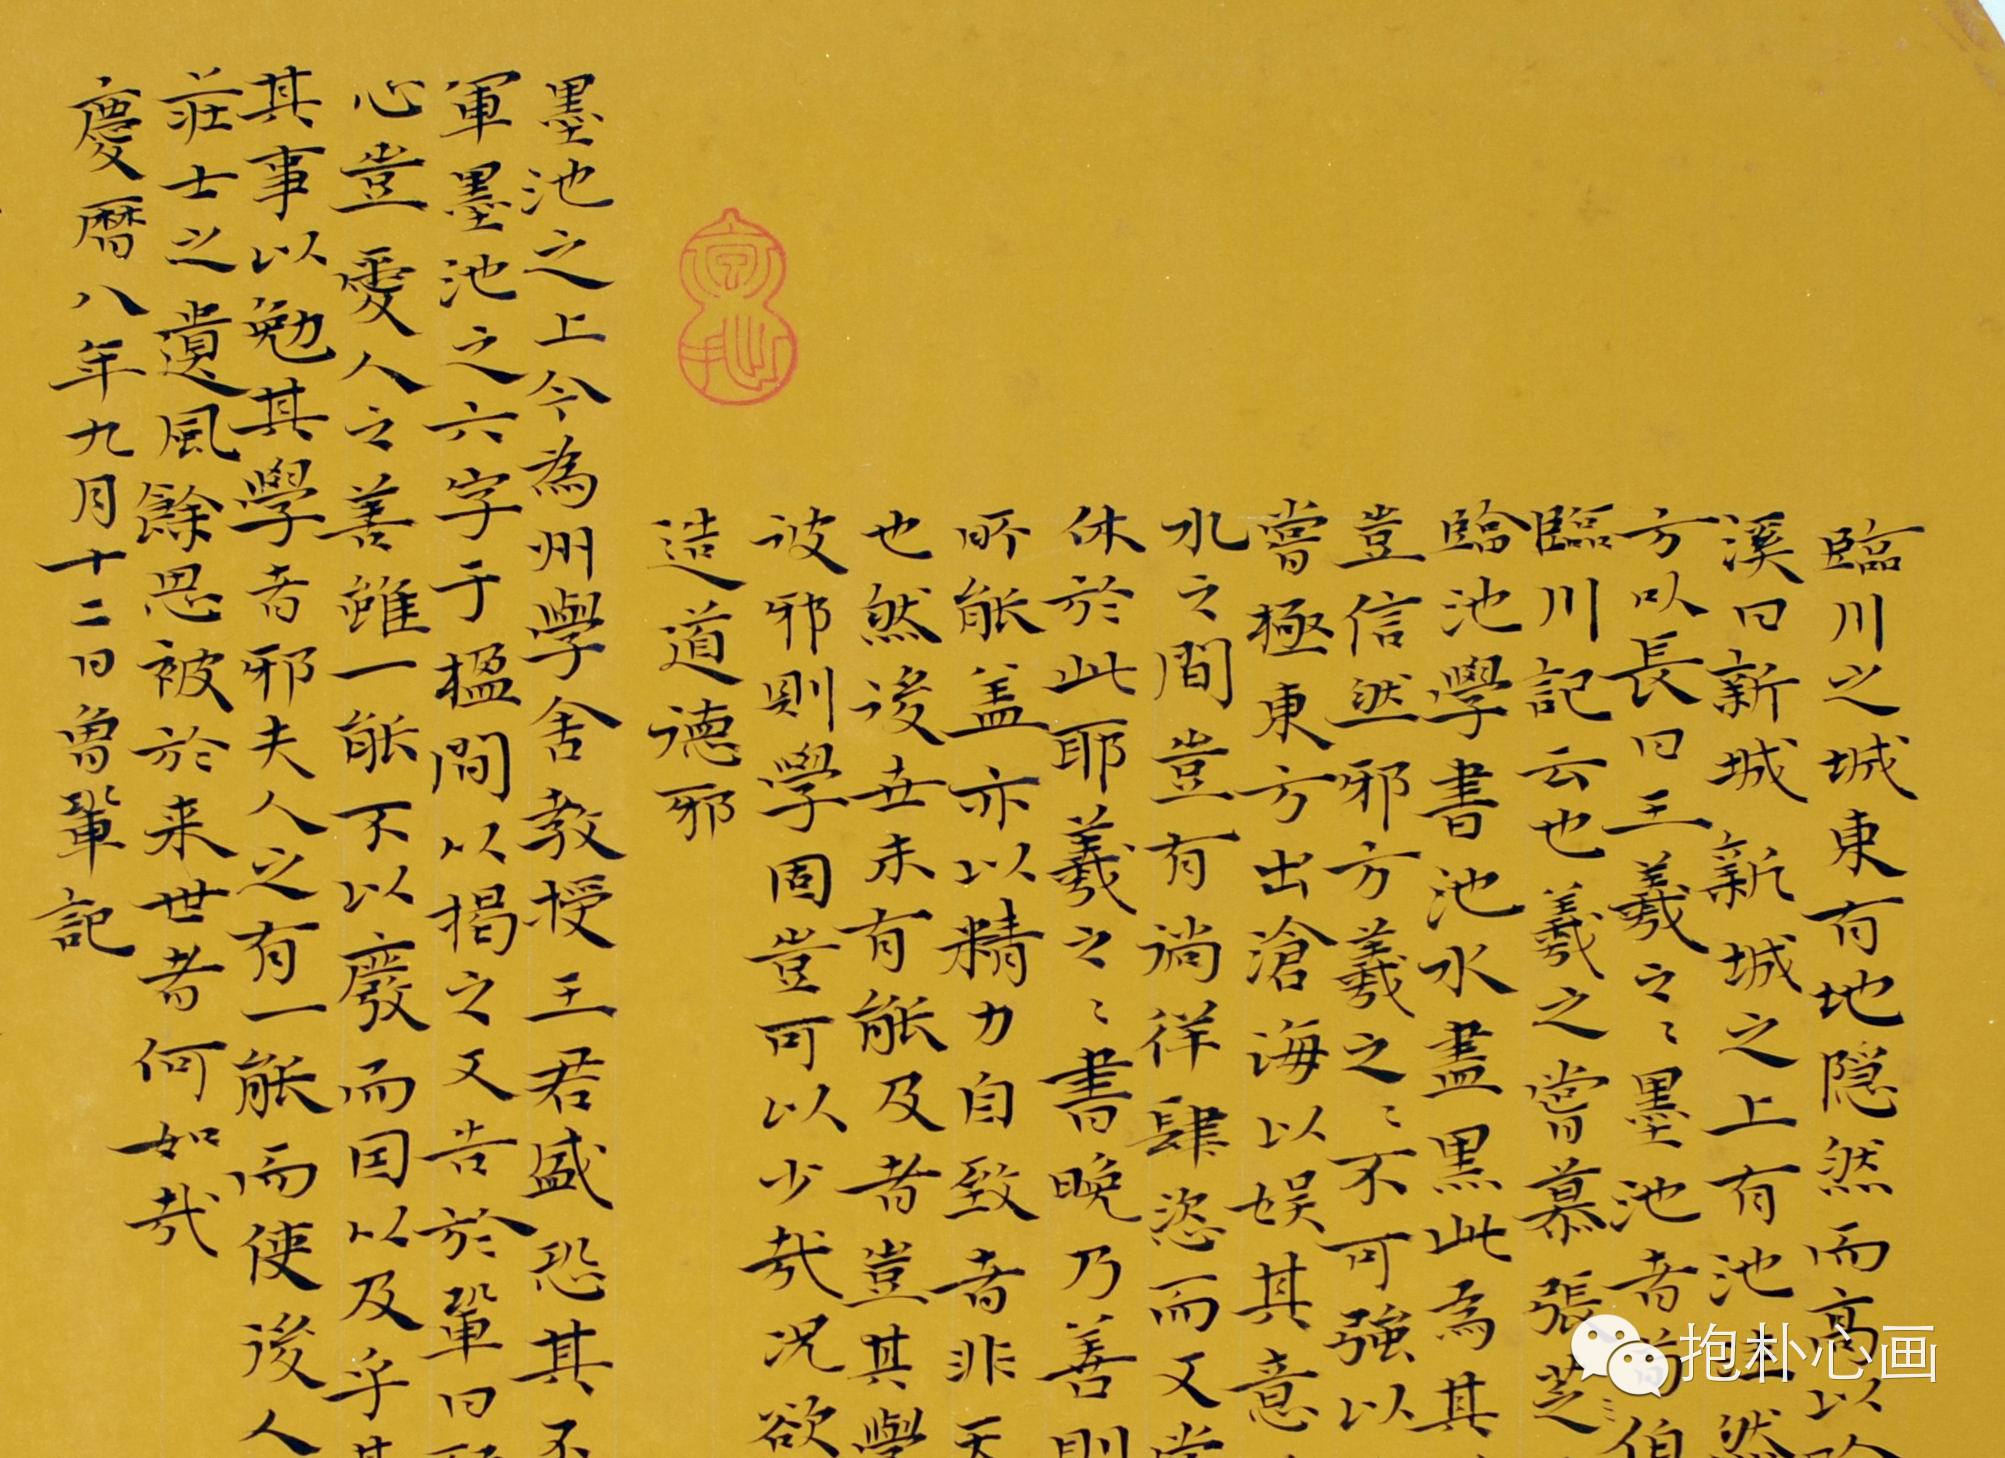 臨川之城東有地隱然而高以臨
溪曰新城新城之上有池洼然
方以長曰王羲之〻墨池者荀伯
臨川記云也羲之嘗慕張芝
臨池學書池水盡黑此為其
豈信然邪方羲之〻不可強以
嘗極東方出滄海以娛其意
水之間豈有徜徉肆恣而又嘗
休於此耶羲之〻書晚乃善則
所能盖亦以精力自致者非天
也然後世未有能及者豈其學
彼邪則學固豈可以少哉況欲
造道德邪
墨池之上今為州學舍教授王君盛恐其不
軍墨池之六字于楹間以揭之又告於鞏曰
心豈愛人之善雖一能不以廢而因以及乎其
其事以勉其學者邪夫人之有一能而使後人
莊士之遺風餘思被於来世者何如哉
慶曆八年九月十二日曾鞏記
抱朴心画